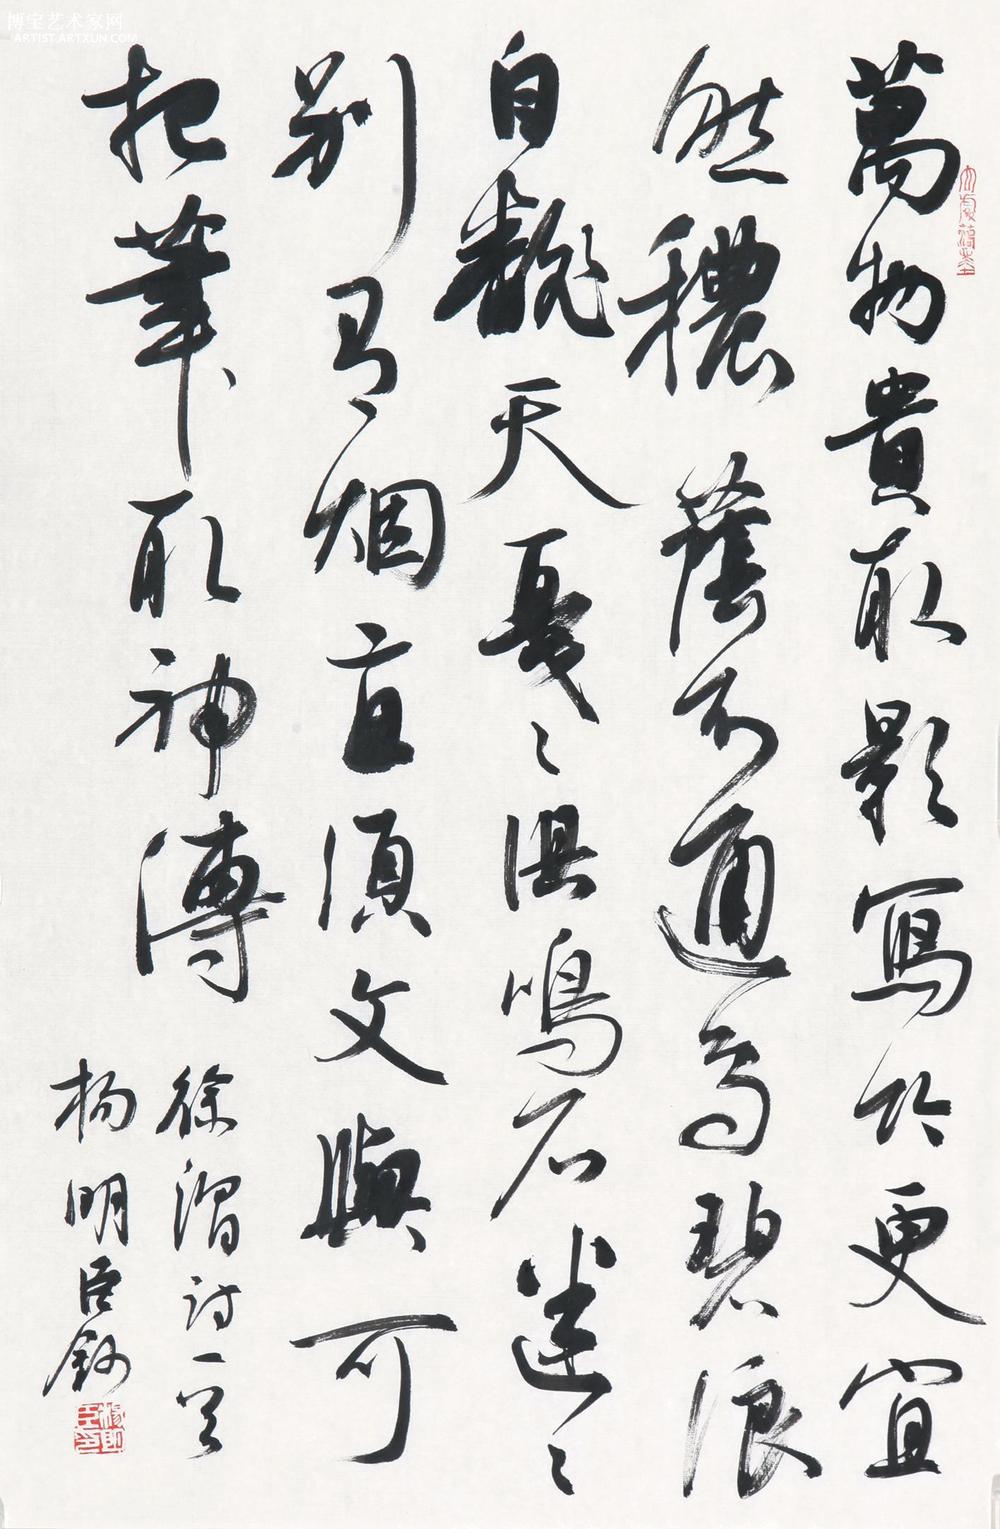 博宝艺术家网
ARTIST.ARTXUN.COM
萬物貴取影寫竹更宜
然穠蔭不通鳥碧浪
自翻天戛々俱鳴石迷々
別有烟直須文與可
把筆取神傳
徐渭詩一首
楊明臣鈔